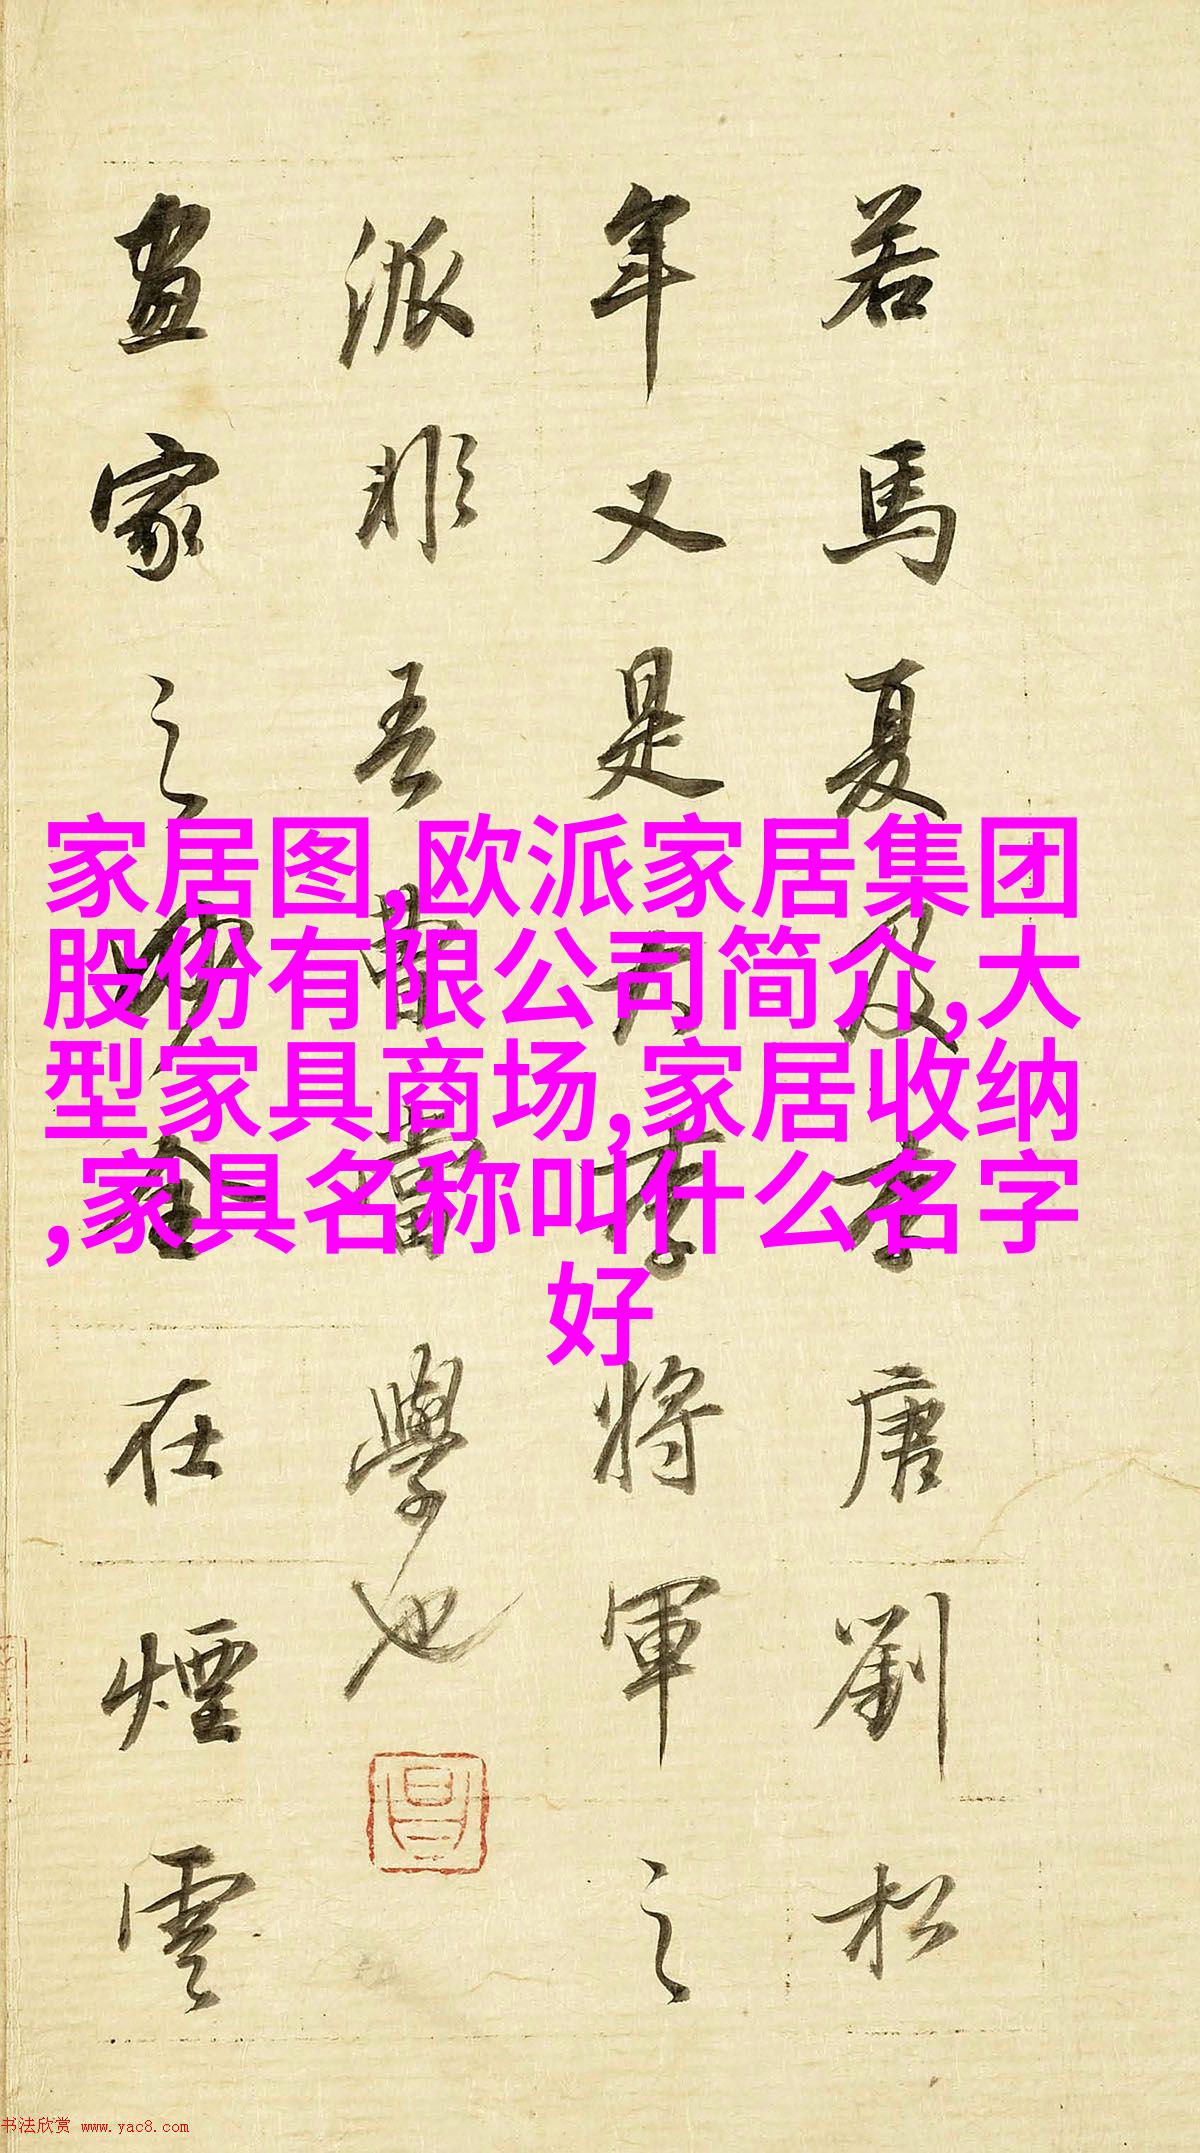 若馬夏及李唐劉松
年又是大李將軍之
派非吾曹當學也
昌
畫家之妙全在煙雲
家居图,欧派家居集团
股份有限公司简介,大
型家具商场,家居收纳
,家具名称叫什么名字
好
书法欣赏 www.yac8.com